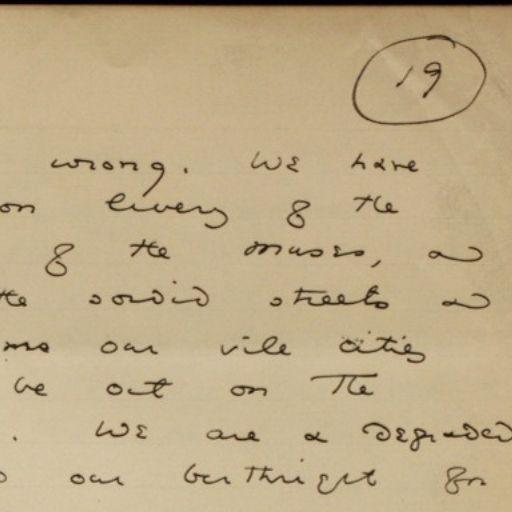 19
wrong. We have
on livery of the
of the muses, and
the sordid streets and
our vile cities
be out on the
. We are a degraded
our birthright for